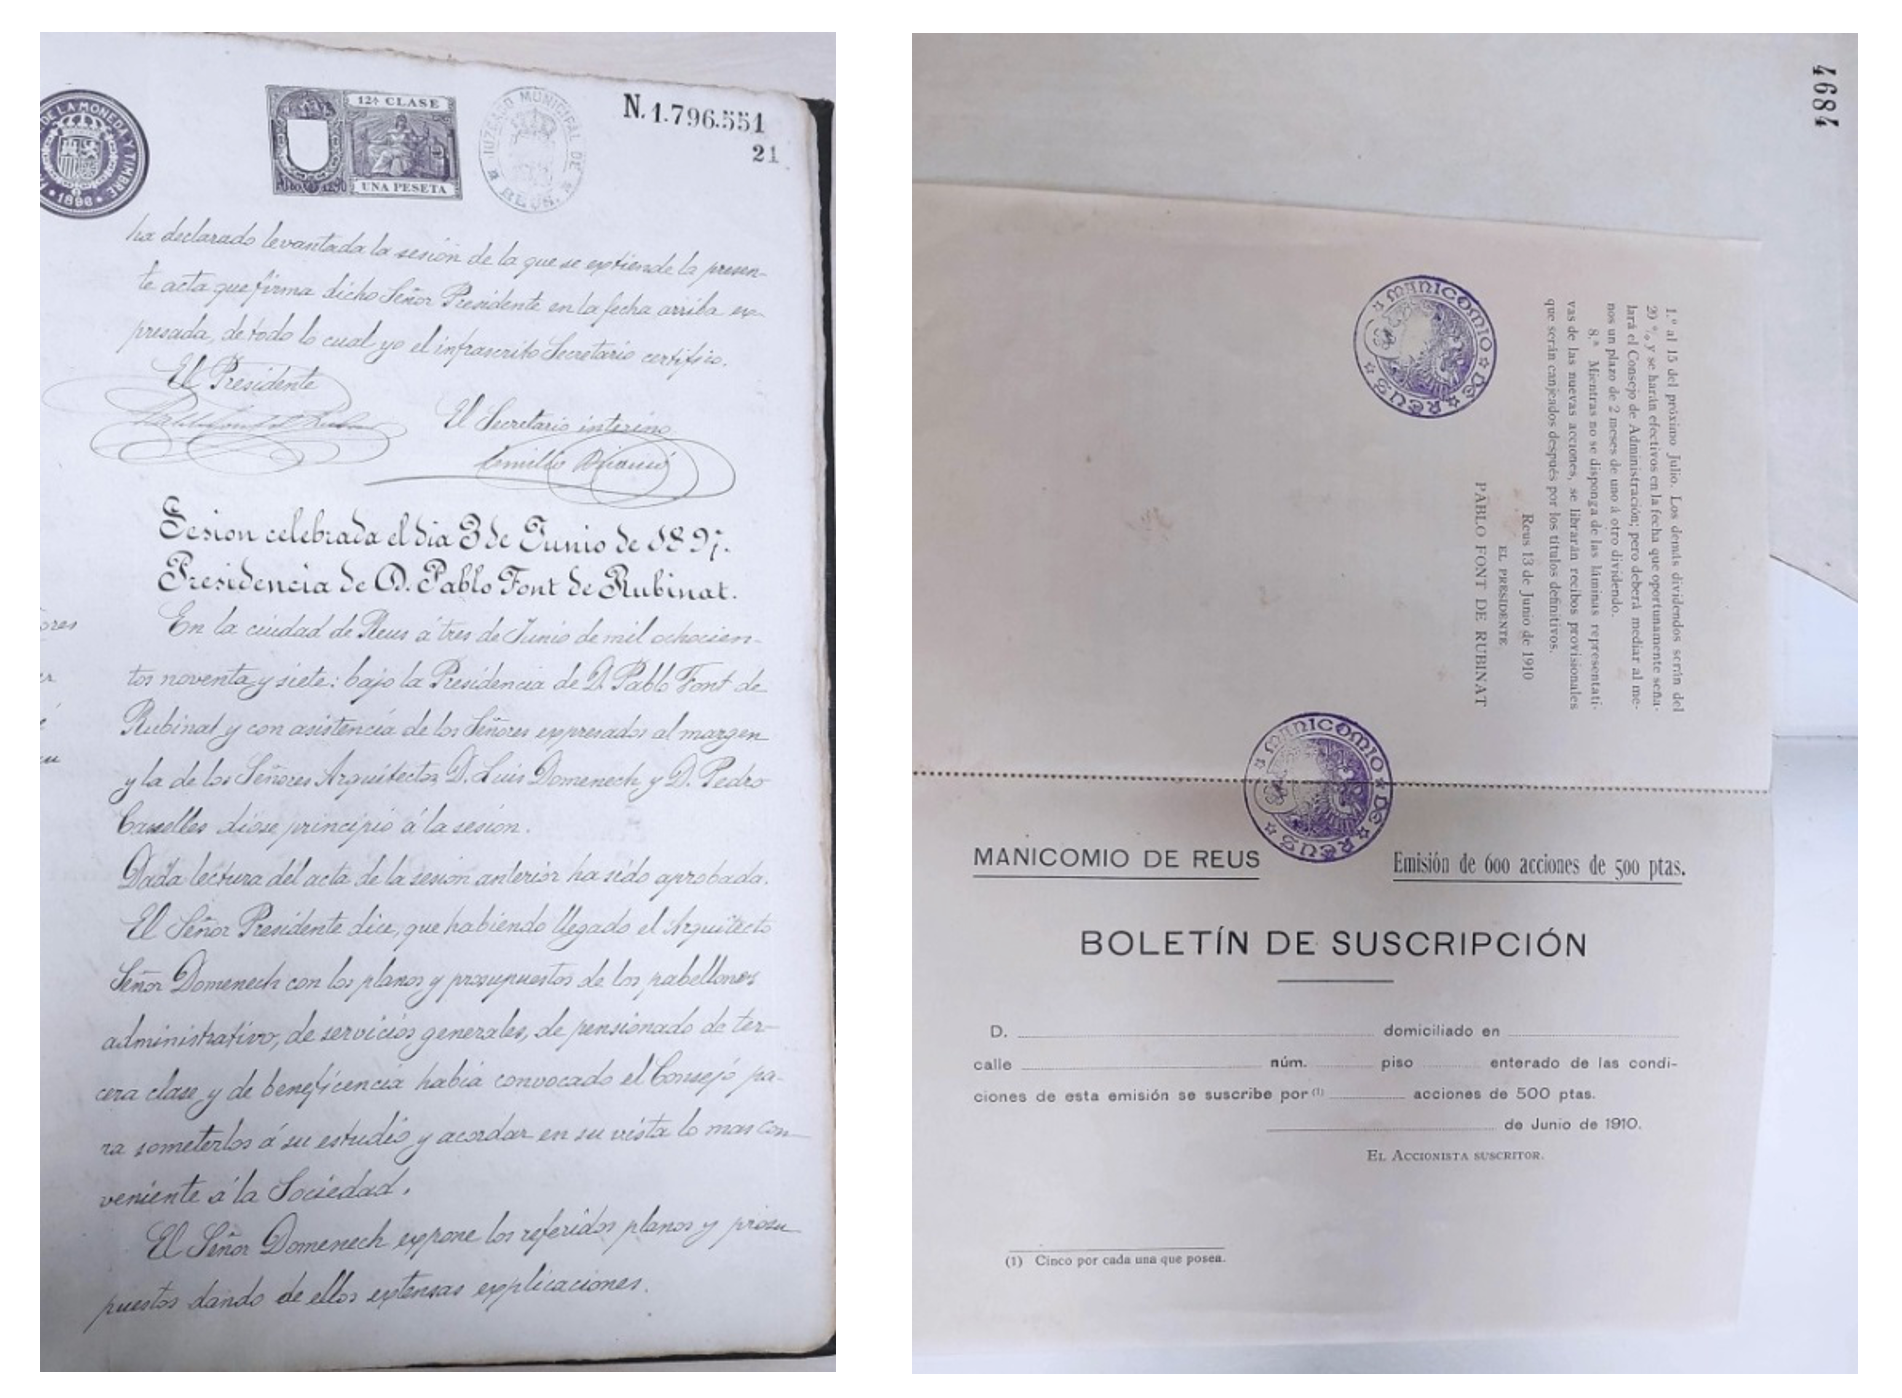 DE LA MONEDA Y TIMBRE
1896
12ª CLASE
UNA PESETA
JUZGADO MUNICIPAL DE
REUS.
N. 1.796.551
21
ha declarado levantada la sesión de la que se extiende la presen-
te acta que firma dicho Señor Presidente en la fecha arriba ex-
presada, de todo lo cual yo el infrascrito Secretario certifico.
El Presidente
Pablo Font de Rubinat
El Secretario interino
Emilio
Sesion celebrada el dia 3 de Junio de 1897.
Presidencia de D. Pablo Font de Rubinat.
En la ciudad de Reus á tres de Junio de mil ochocien-
tos noventa y siete: bajo la Presidencia de D. Pablo Font de
Rubinat y con asistencia de los Señores expresados al margen
y la de los Señores Arquitectos D. Luis Domenech y D. Pedro
Caselles dióse principio á la sesion.
Dada lectura del acta de la sesion anterior ha sido aprobada.
El Señor Presidente dice, que habiendo llegado el Arquitecto
Señor Domenech con los planos y presupuestos de los pabellones
administrativo, de servicios generales, de pensionado de ter-
cera clase y de beneficencia habia convocado el Consejo pa-
ra someterlos á su estudio y acordar en su vista lo mas con-
veniente á la Sociedad.
El Señor Domenech expone los referidos planos y presu
puestos dando de ellos extensas explicaciones.
ores
4897
1.º al 15 del próximo Julio. Los demás dividendos serán del
20 % y se harán efectivos en la fecha que oportunamente seña-
lará el Consejo de Administración; pero deberá mediar al me-
nos un plazo de 2 meses de uno á otro dividendo.
8.ª Mientras no se disponga de las láminas representati-
vas de las nuevas acciones, se librarán recibos provisionales
que serán canjeados después por los títulos definitivos.
Reus 13 de Junio de 1910
EL PRESIDENTE
PABLO FONT DE RUBINAT
MANICOMIO DE REUS
MANICOMIO DE REUS
MANICOMIO DE REUS
Emisión de 600 acciones de 500 ptas.
BOLETÍN DE SUSCRIPCIÓN
D. domiciliado en
calle núm. piso enterado de las condi-
ciones de esta emisión se suscribe por (1) acciones de 500 ptas.
de Junio de 1910.
EL ACCIONISTA SUSCRITOR.
(1) Cinco por cada una que posea.